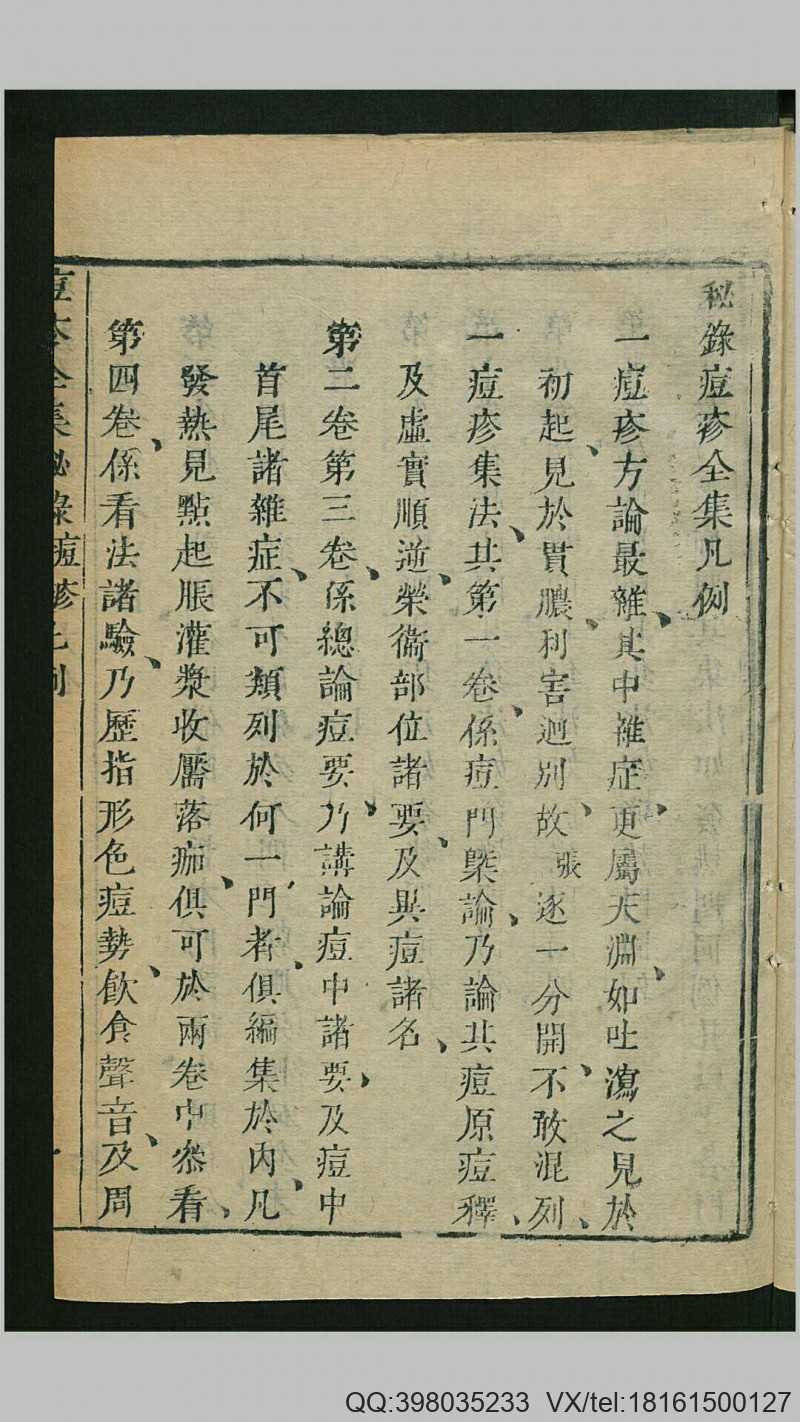 秘錄痘疹全集凡例
一痘疹方論最雜、其中雜症、更屬天淵、如吐瀉之見於
初起、見於貫膿、利害迥別、故張逐一分開、不敢混列、
一痘疹集法、共第一卷、係痘門槩論、乃論其痘原痘釋、
及虛實順逆、榮衞部位諸要、及異痘諸名、
第二卷第三卷、係總論痘要、乃講論痘中諸要、及痘中
首尾諸雜症、不可類列於何一門者、俱編集於內、凡
發熱見點起脹灌漿收靨落痂、俱可於兩卷中叅看、
第四卷、係看法諸驗、乃歷指形色痘勢、飲食聲音、及周
痘疹全集秘錄痘疹凡例
QQ:398035233 VX/tel:18161500127